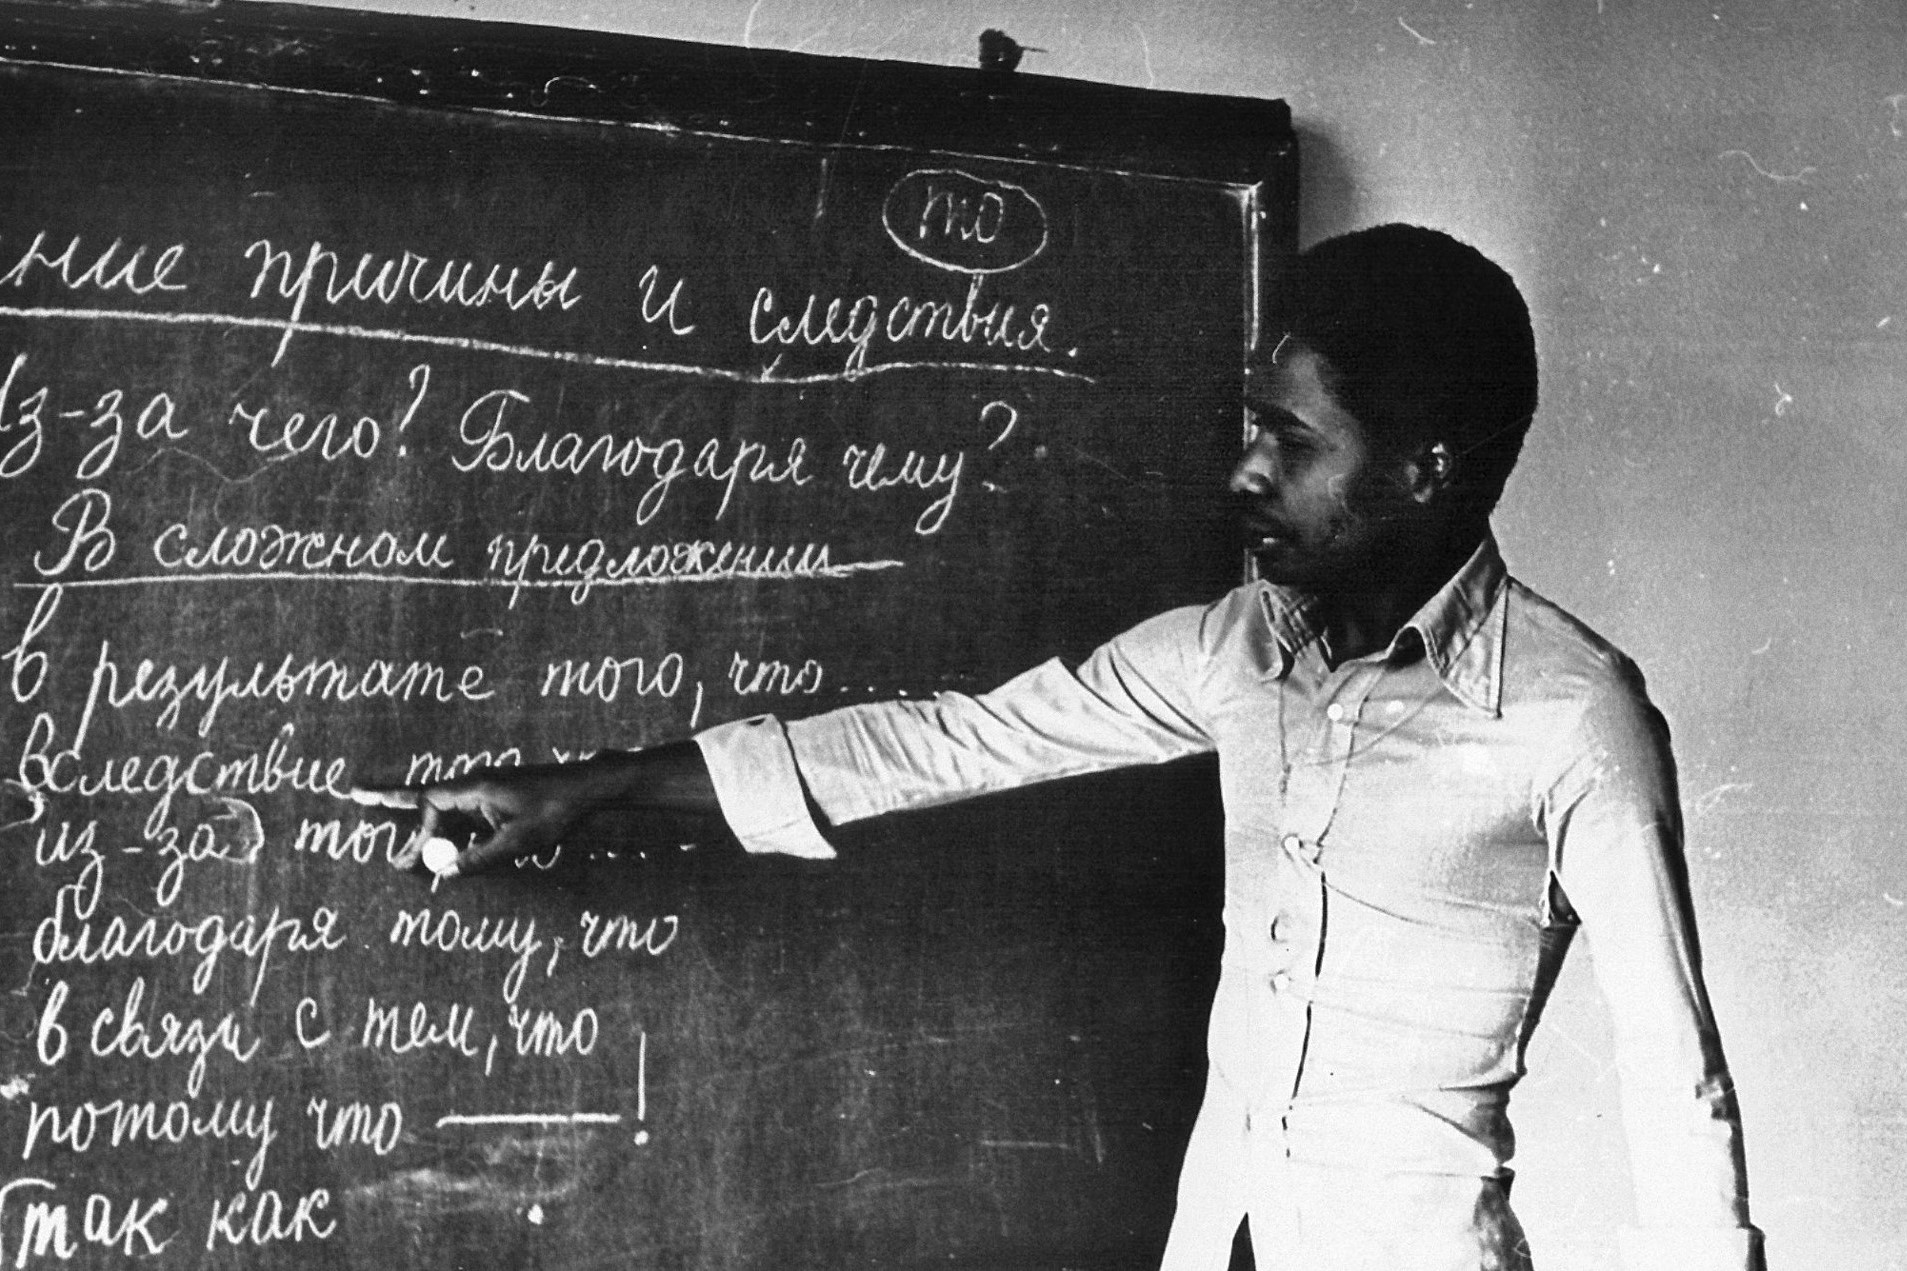 то
ние причины и следствия.
Из-за чего? Благодаря чему?
В сложном предложении
в результате того, что ......
вследствие того
из-за того ....
благодаря тому, что
в связи с тем, что
потому что — !
так как